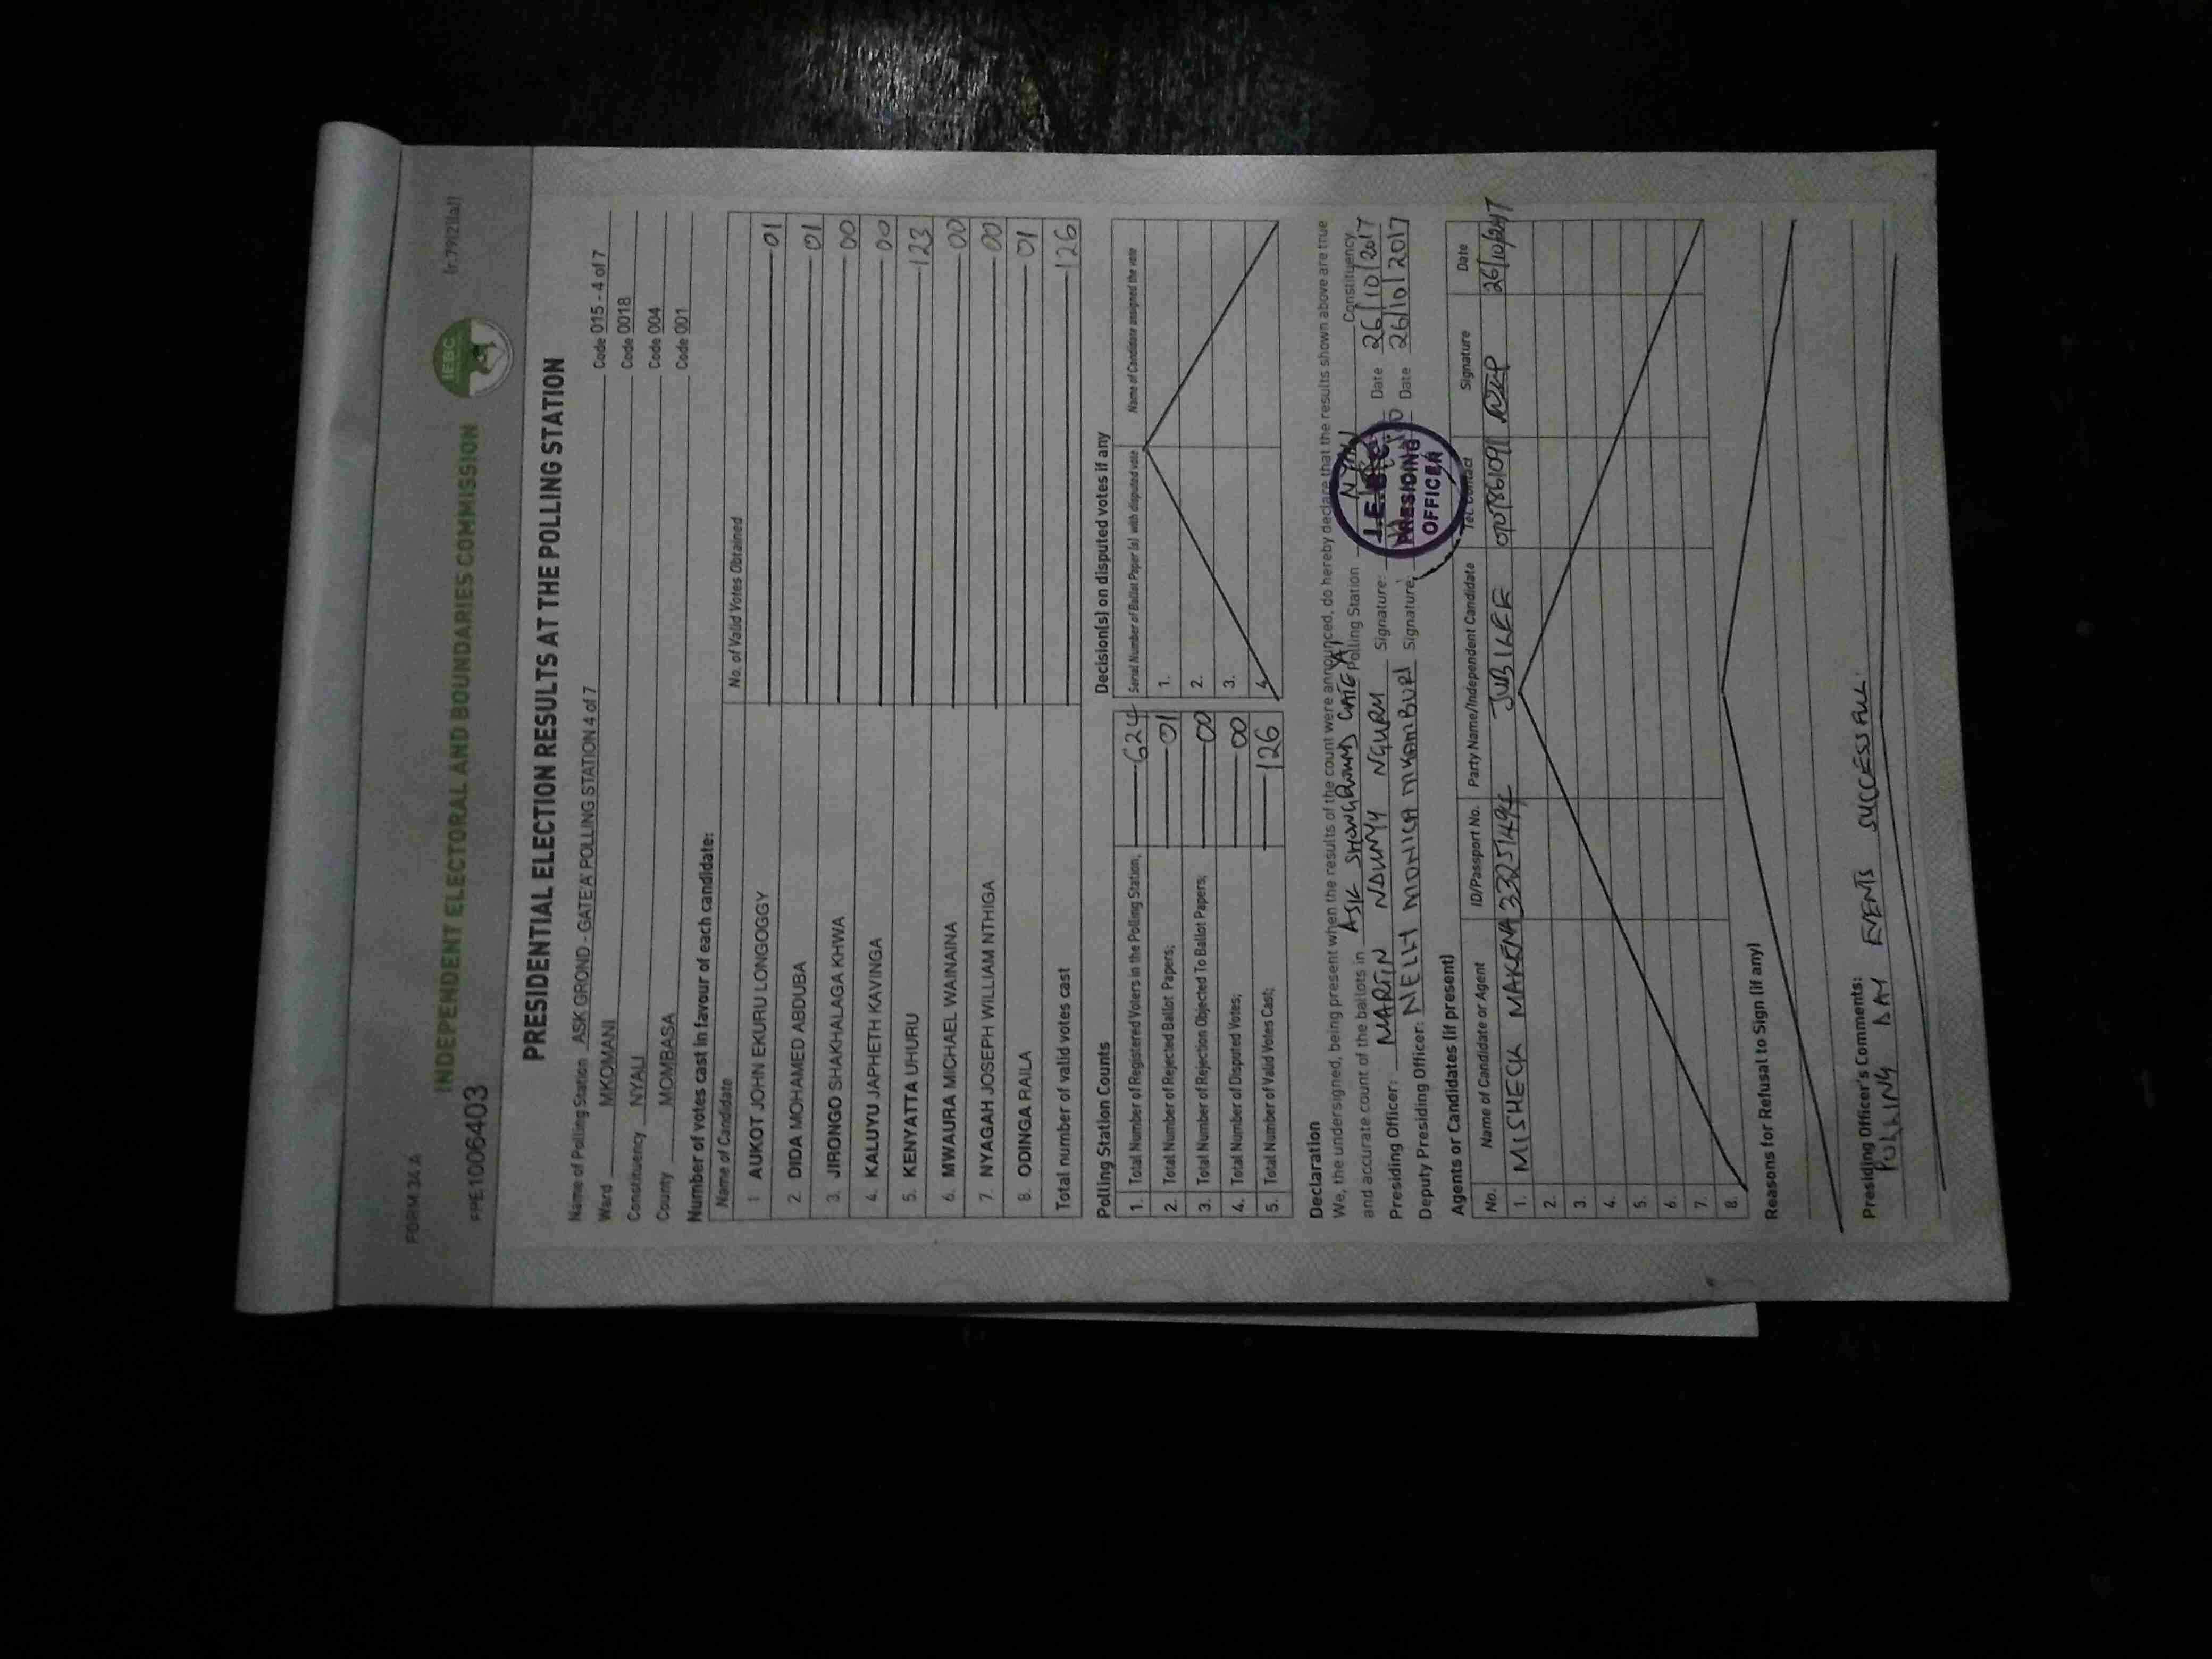 FORM 34 A
(r.79(2)(a))
INDEPENDENT ELECTORAL AND BOUNDARIES COMMISSION
IEBC
FPE1006403
PRESIDENTIAL ELECTION RESULTS AT THE POLLING STATION
Name of Polling Station ASK GROND - GATE'A' POLLING STATION 4 of 7
Ward MKOMANI Code 015 - 4 of 7
Constituency NYALI Code 0018
County MOMBASA Code 004
Code 001
Number of votes cast in favour of each candidate:
Name of Candidate No. of Valid Votes Obtained
1 AUKOT JOHN EKURU LONGOGGY 01
2. DIDA MOHAMED ABDUBA 01
3. JIRONGO SHAKHALAGA KHWA 00
4. KALUYU JAPHETH KAVINGA 00
5. KENYATTA UHURU 123
6. MWAURA MICHAEL WAINAINA 00
7. NYAGAH JOSEPH WILLIAM NTHIGA 00
8. ODINGA RAILA 01
Total number of valid votes cast 126
Polling Station Counts
1. Total Number of Registered Voters in the Polling Station; 624
2. Total Number of Rejected Ballot Papers; 01
3. Total Number of Rejection Objected To Ballot Papers; 00
4. Total Number of Disputed Votes; 00
5. Total Number of Valid Votes Cast; 126
Decision(s) on disputed votes if any
Serial Number of Ballot Paper (s) with disputed vote Name of Candidate assigned the vote
1.
2.
3.
4.
Declaration
We, the undersigned, being present when the results of the count were announced, do hereby declare that the results shown above are true
and accurate count of the ballots in ASK SHOWGROUND GATE 'A' Polling Station Constituency
Presiding Officer: MARTIN NDUMY NGURU Signature: Date 26/10/2017
Deputy Presiding Officer: NELLY MONICA MKAMBURI Signature: Date 26/10/2017
I.E.B.C
PRESIDING
OFFICER
Agents or Candidates (if present)
No. Name of Candidate or Agent ID/Passport No. Party Name/Independent Candidate Tel. Contact Signature Date
1. MISHECK MAKENA 33251494 JUBILEE 26/10/2017
2.
3.
4.
5.
6.
7.
8.
Reasons for Refusal to Sign (if any)
Presiding Officer's Comments:
POLLING DAY EVENTS SUCCESSFULL.